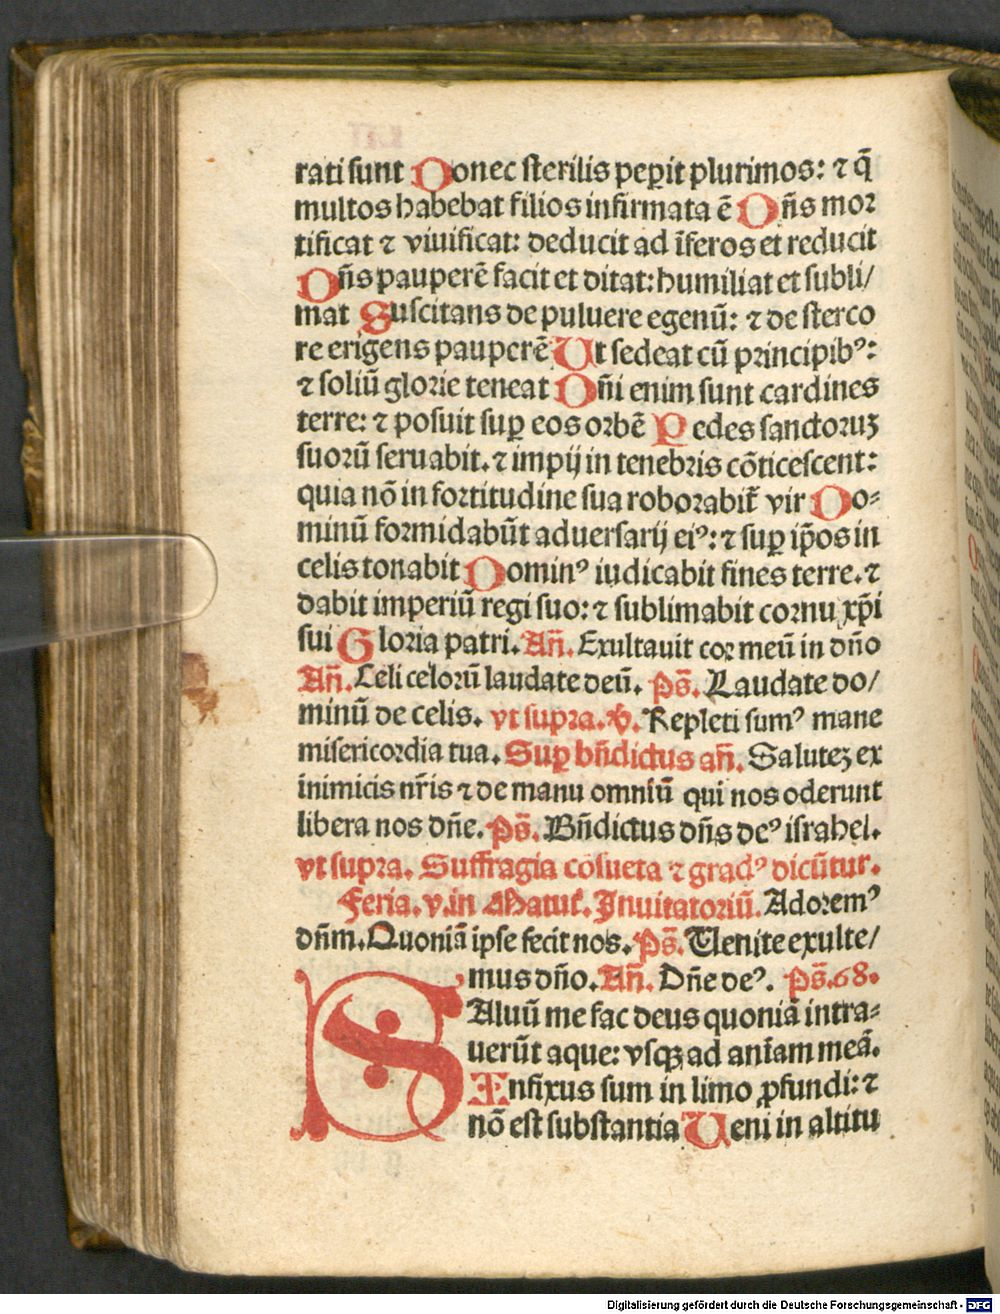 rati sunt Donec sterilis peꝑit plurimos: ⁊ q̄
multos habebat filios infirmata ē Dn̄s mor
tificat ⁊ viuificat: deducit ad īferos et reducit
Dn̄s pauperē facit et ditat: humiliat et subli/
mat Suscitans de puluere egenū: ⁊ de sterco
re erigens pauperē Ut sedeat cū principibꝰ:
⁊ soliū glorie teneat Dn̄i enim sunt cardines
terre: ⁊ posuit suꝑ eos orbē Pedes sanctoruꝫ
suorū seruabit. ⁊ impij in tenebris cōticescent:
quia nō in fortitudine sua roborabit̄ vir Do⸗
minū formidabūt aduersarij eiꝰ: ⁊ suꝑ ip̄os in
celis tonabit Dominꝰ iudicabit fines terre. ⁊
dabit imperiū regi suo: ⁊ sublimabit cornu xp̄i
sui Gloria patri. An̄. Exultauit cor meū in dn̄o
An̄. Celi celorū laudate deū. Ps̄. Laudate do/
minū de celis. vt supra. ℣. Repleti sumꝰ mane
misericordia tua. Suꝑ bn̄dictus an̄. Saluteꝫ ex
inimicis nr̄is ⁊ de manu omniū qui nos oderunt
libera nos dn̄e. Ps̄. Bn̄dictus dn̄s deꝰ israhel.
vt supra. Suffragia cōsueta ⁊ gradꝰ dicūtur.
Feria. v. in Matut̄. Inuitatoriū. Adoremꝰ
dn̄m. Quoniā ipse fecit nos. Ps̄. Uenite exulte/
mus dn̄o. An̄. Dn̄e deꝰ. Ps̄. 68.
SAluū me fac deus quoniā intra⸗
uerūt aque: vsqꝫ ad anīam meā.
Infixus sum in limo ꝓfundi: ⁊
nō est substantia Ueni in altitu
Digitalisierung gefördert durch die Deutsche Forschungsgemeinschaft - DFG